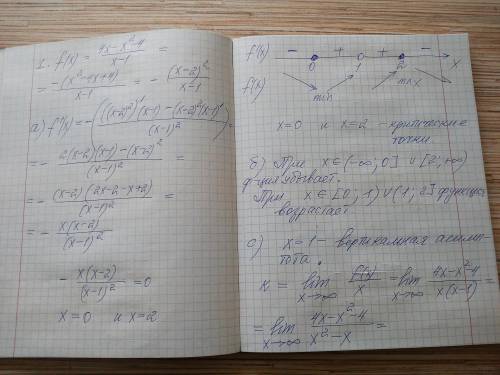 1. f(x) = (4x-x²-4)/(x-1) =
= -(x²-4x+4)/(x-1) = - (x-2)²/(x-1)
a) f'(x) = -(((x-2)²)'(x-1) - (x-2)²(x-1)')/(x-1)² =
= - (2(x-2)(x-1)-(x-2)²)/(x-1)² =
= - (x-2)(2x-2-x+2)/(x-1)² =
= - x(x-2)/(x-1)²
- x(x-2)/(x-1)² = 0
x=0 и x=2
f'(x) - + + - x
0 1 2
f(x) min max
x=0 и x=2 - критические
точки.
б) При x∈(-∞; 0] ∪ [2; +∞)
ф-ция убывает.
При x∈[0; 1)∪(1; 2] функция
возрастает
с) x=1 - вертикальная асимп-
тота.
k = lim x→∞ f(x)/x = lim x→∞ (4x-x²-4)/(x(x-1)) =
= lim x→∞ (4x-x²-4)/(x²-x) =